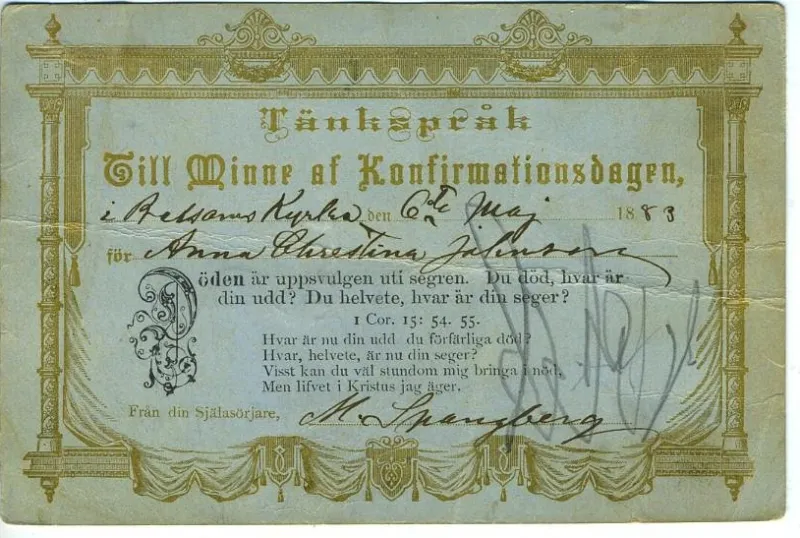 Tänkspråk
Till Minne af Konfirmationsdagen,
i Balsams Kyrka den 6te Maj 1883
för Anna Chrestina Johnson
Döden är uppsvulgen uti segren. Du död, hvar är
din udd? Du helvete, hvar är din seger?
1 Cor. 15: 54. 55.
Hvar är nu din udd du förfärliga död?
Hvar, helvete, är nu din seger?
Visst kan du väl stundom mig bringa i nöd,
Men lifvet i Kristus jag äger.
Från din Själasörjare, M. Spangberg